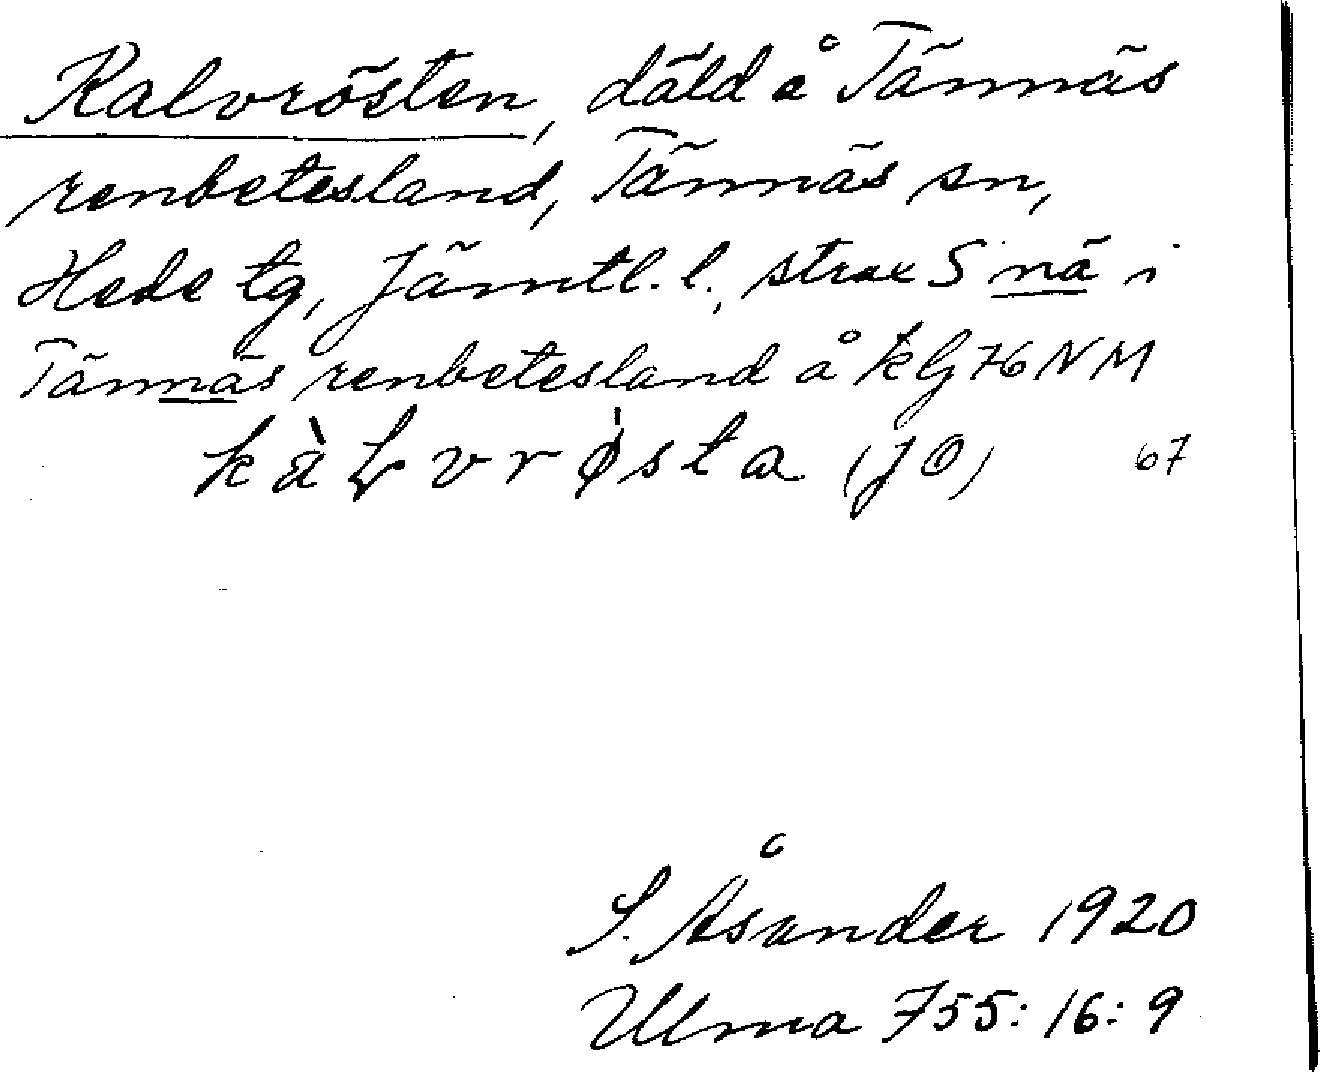 Kalvrösten, däld å Tännäs
renbetesland, Tännäs sn,
Hede tg, Jämtl. l., strax S nä i
Tännäs renbetesland å kG 76 NM
kàLvrø̀sta (JO) 67
S. Åsander 1920
Ulma 755:16:9